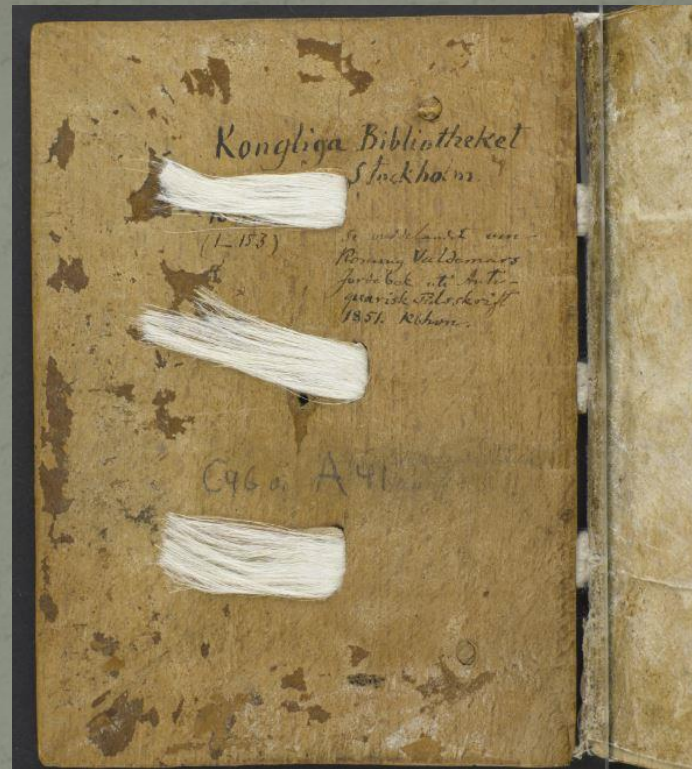 Kongliga Bibliotheket
Stockholm
(1–153)
Se meddelandet om
Konung Valdemars
Jordebok uti Anti-
quarisk Tidsskrift
1851. Kbhvn.
C96 a. A 41